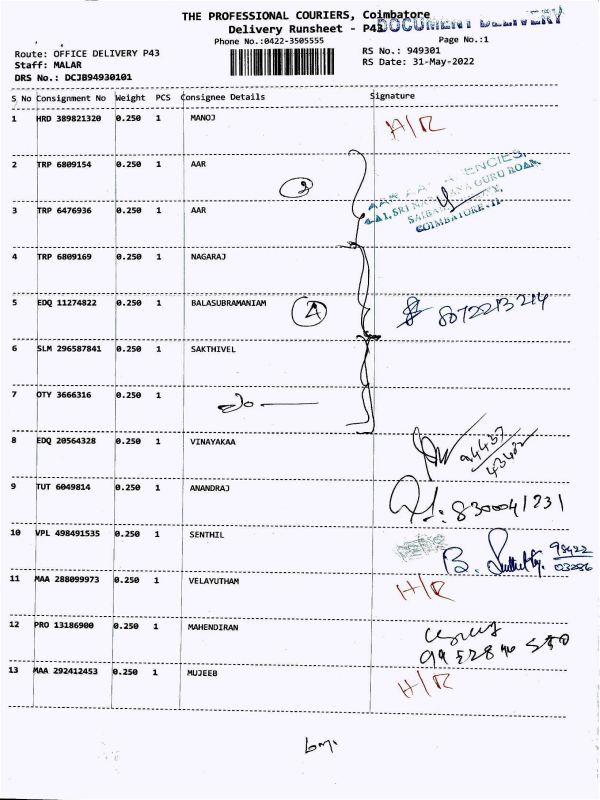 THE PROFESSIONAL COURIERS, Coimbatore
DOCUMENT DELIVERY
Delivery Runsheet - P43
Phone No.:0422-3505555
Page No.:1
Route: OFFICE DELIVERY P43
RS No.: 949301
Staff: MALAR
RS Date: 31-May-2022
DRS No.: DCJB94930101
S No Consignment No Weight PCS Consignee Details Signature
1 HRD 389821320 0.250 1 MANOJ H/R
2 TRP 6809154 0.250 1 AAR
3 TRP 6476936 0.250 1 AAR
COIMBATORE-11
4 TRP 6809169 0.250 1 NAGARAJ
5 EDQ 11274822 0.250 1 BALASUBRAMANIAM 4 8072213214
6 SLM 296587841 0.250 1 SAKTHIVEL
7 OTY 3666316 0.250 1
8 EDQ 20564328 0.250 1 VINAYAKAA
9 TUT 6049814 0.250 1 ANANDRAJ
10 VPL 498491535 0.250 1 SENTHIL B. 98422
03286
11 MAA 288099973 0.250 1 VELAYUTHAM H/R
12 PRO 13186900 0.250 1 MAHENDIRAN
13 MAA 292412453 0.250 1 MUJEEB H/R